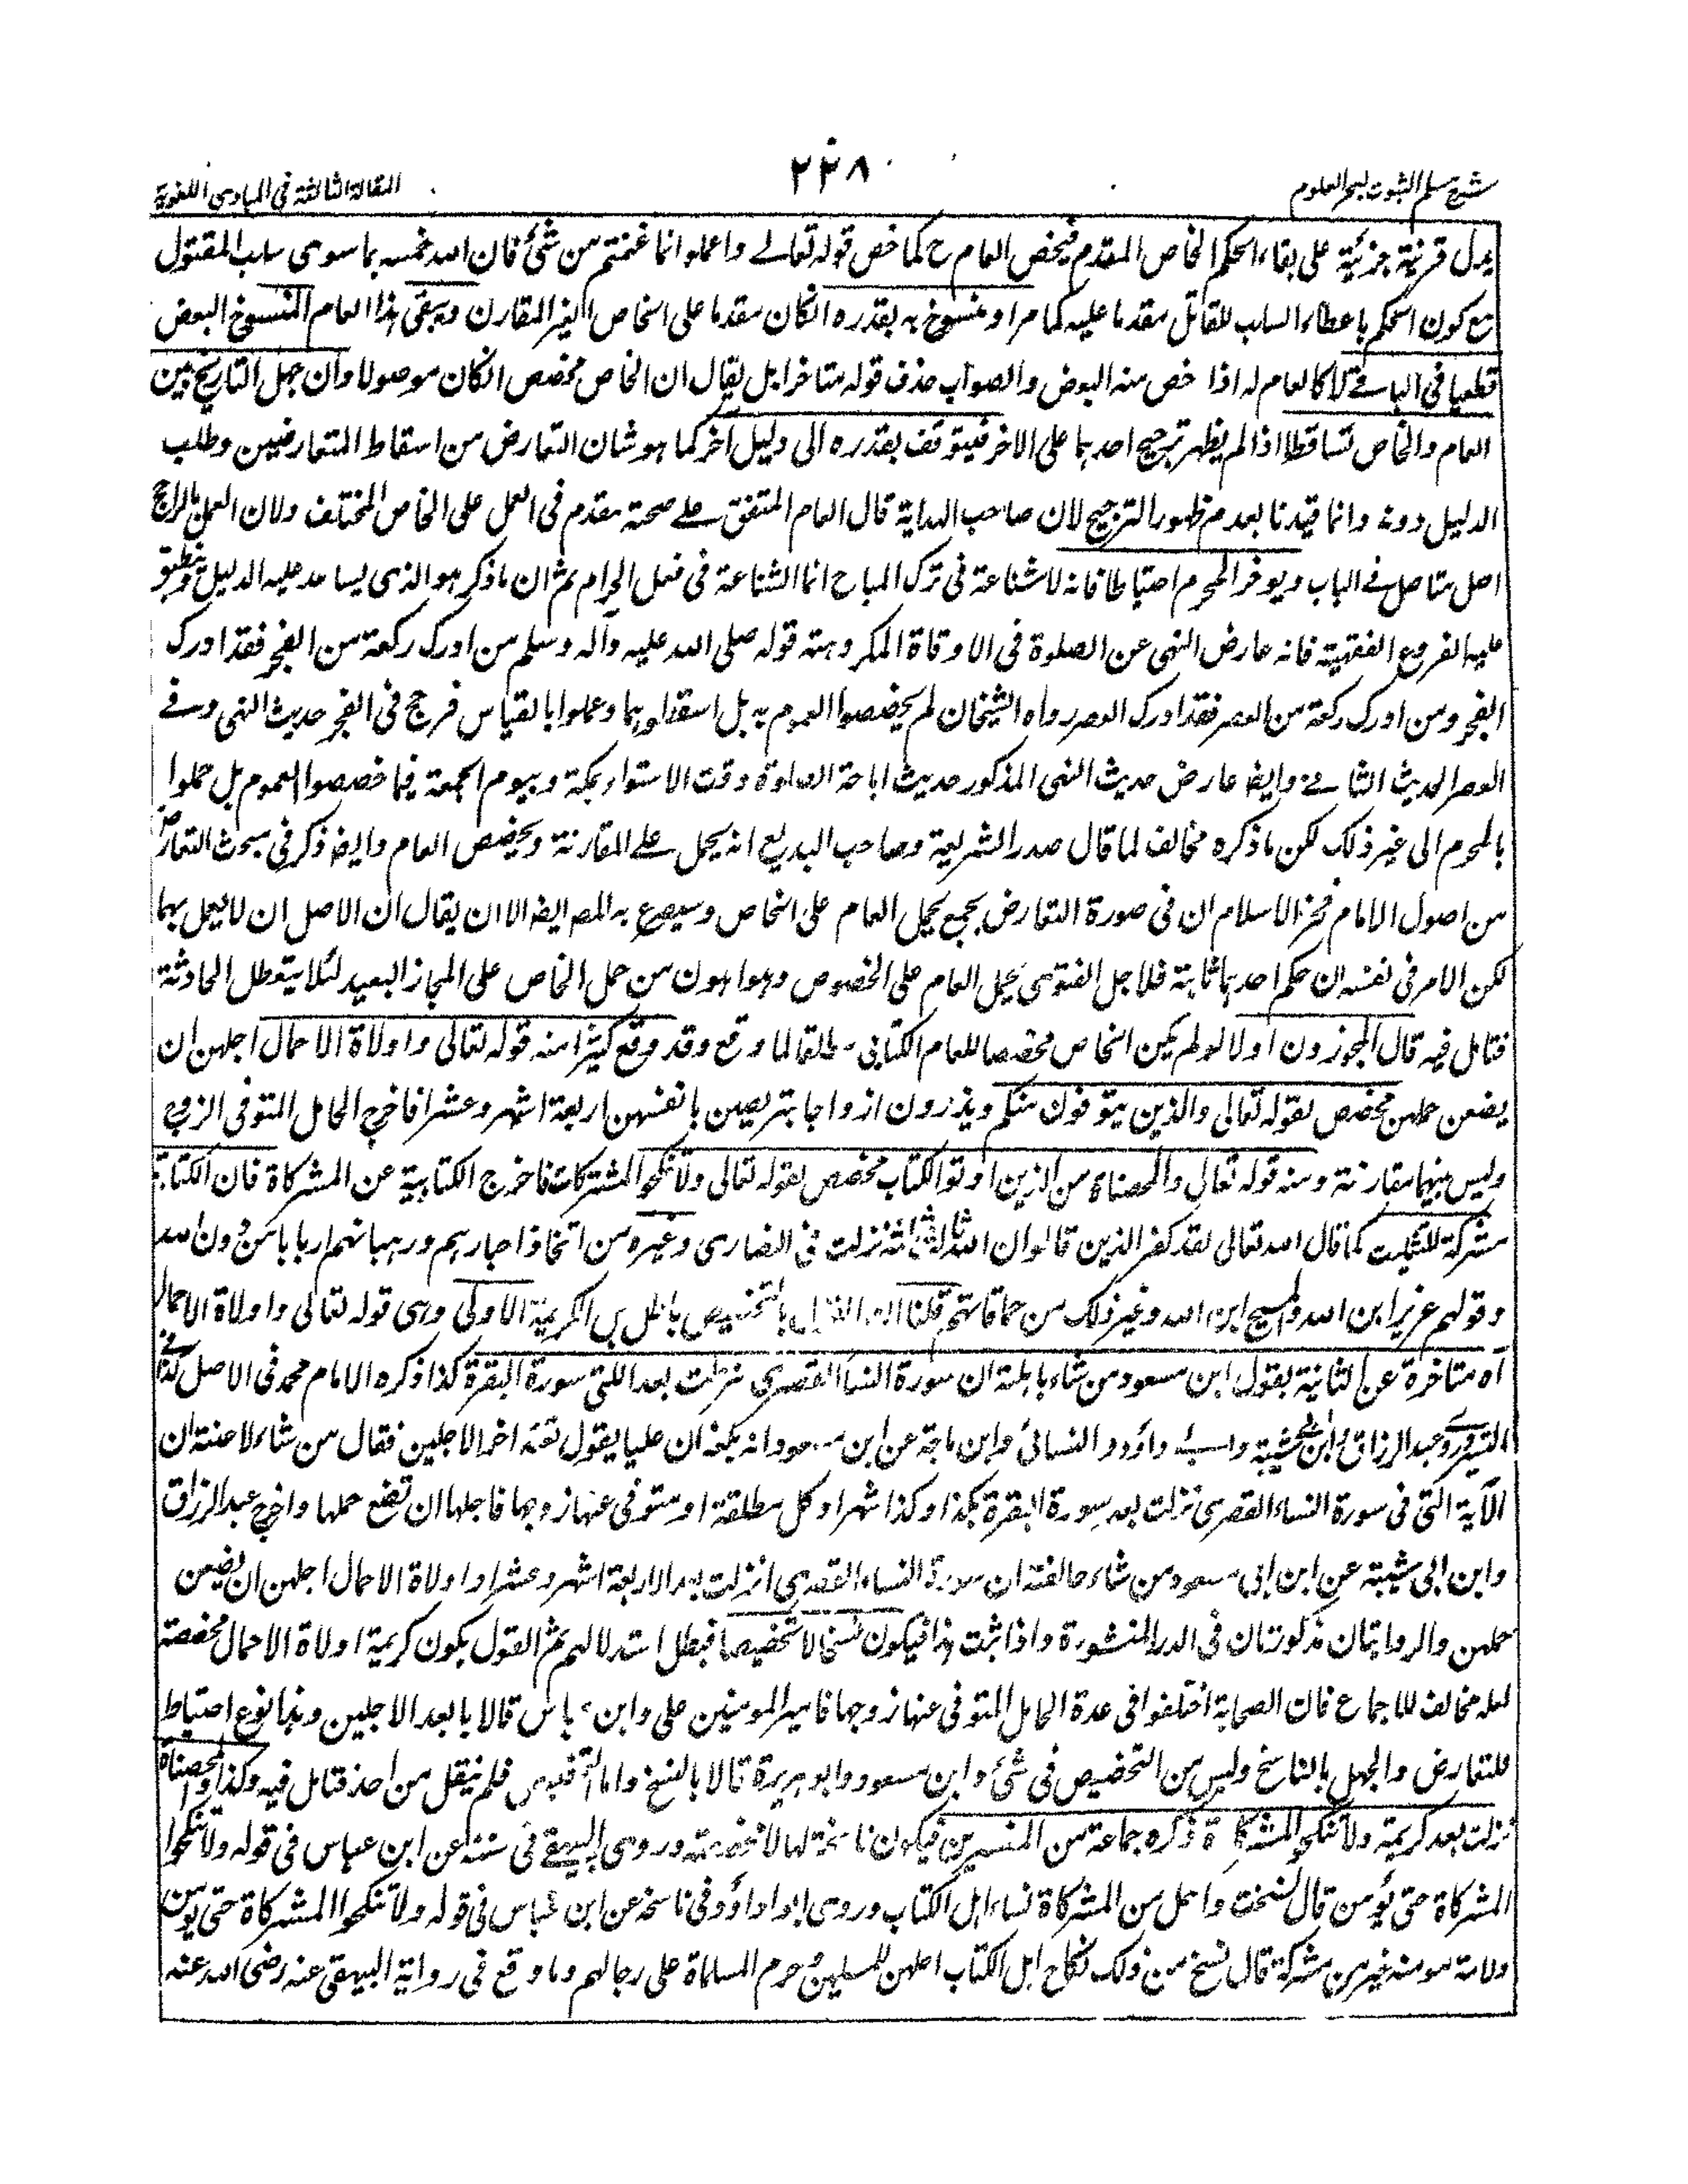 شرح مسلم الثبوت لبحر العلوم
٢٢٨
المقالة الثالثة فى المبادى اللغوية
يدل قرينة جزئية على بقاء الحكم الخاص المقدم فيخص العام ح كما خص قوله تعالے واعلموا انما غنمتم من شئ فان لله خمسه بما سوى سلب المقتول
مع كون الحكم باعطاء السلب للقاتل مقدما عليه كما مر او منسوخ به بقدره انكان مقدما على الخاص الغير المقارن ويبقى هذا العام المنسوخ البعض
قطعيا فى الباقے لا كالعام له اذا خص منه البعض والصواب حذف قوله متاخرا بل يقال ان الخاص مخصص انكان موصولا وان جهل التاريخ بين
العام والخاص تساقطا اذا لم يظهر ترجيح احدهما على الاخر فيتوقف بقدره الى دليل اخر كما هو شان التعارض من اسقاط المتعارضين وطلب
الدليل دونه وانما قيدنا بعدم ظهور الترجيح لان صاحب الهداية قال العام المتفق علے صحته مقدم فى العمل على الخاص المختلف ولان العمل بالراجح
اصل متاصل فے الباب ويوخر المحرم احتياطا فانه لا شناعة فى ترك المباح انما الشناعة فى فعل الحرام ثم ان ما ذكر هو الذى يساعد عليه الدليل وينطبق
عليه الفروع الفقهية فانه عارض النهى عن الصلوة فى الاوقاة المكروهة قوله صلى الله عليه وآله وسلم من ادرك ركعة من الفجر فقد ادرك
الفجر ومن ادرك ركعة من العصر فقد ادرك العصر رواه الشيخان لم يخصصوا العموم به بل اسقطوهما وعملوا بالقياس فرجح فى الفجر حديث النهى وفے
العصر الحديث الثانے وايضا عارض حديث النهى المذكور حديث اباحة الصلوة وقت الاستواء بمكة وبيوم الجمعة فما خصصوا العموم بل عملوا
بالمحرم الى غير ذلك لكن ما ذكره مخالف لما قال صدر الشريعة وصاحب البديع انه يحمل علے المقارنة ويخصص العام وايضا ذكر فى بحث التعارض
من اصول الامام فخر الاسلام ان فى صورة التعارض يجمع بحمل العام على الخاص وسيصرح به المص ايضا الا ان يقال ان الاصل ان لا يعمل بهما
لكن الامر فى نفسه ان حكم احدهما ثابتة فلاجل الفتوى يحمل العام على الخصوص وهو اهون من حمل الخاص على المجاز البعيد لئلا يتعطل الحادثة
فتامل فيه قال المجوزون اولا لو لم يكن الخاص مخصصا للعام الكتابى مطلقا لما وقع وقد وقع كثيرا منه قوله تعالى واولاة الاحمال اجلهن ان
يضعن حملهن مخصص بقوله تعالى والذين يتوفون منكم ويذرون ازواجا يتربصن بانفسهن اربعة اشهر وعشرا فاخرج الحامل المتوفى الزوج
وليس بينهما مقارنة ومنه قوله تعالى والمحصناة من الذين اوتوا الكتاب مخصص لقوله تعالى ولا تنكحوا المشركات فاخرج الكتابية عن المشركاة فان الكتابية
مشركة للتثليث كما قال الله تعالى لقد كفر الذين قالوا ان الله ثالث ثلثة نزلت فى النصارى وغيره من اتخاذ احبارهم ورهبانهم اربابا من دون الله
وقولهم عزير ابن الله والمسيح ابن الله وغير ذلك من حماقاتهم قلنا بالتخصيص باطل بل الكريمة الاولى وهى قوله تعالى واولاة الاحمال
اه متاخرة عن الثانية بقول ابن مسعود من شاء باهلته ان سورة النساء القصرى نزلت بعد اللتى سورة البقرة كذا ذكره الامام محمد فى الاصل كذا فے
التيسير وروے عبد الرزاق وابن ابى شيبة وابے داؤد والنسائى وابن ماجة عن ابن مسعود انه بلغه ان عليا يقول تعتد اخر الاجلين فقال من شاء لاعنته ان
الآية التى فى سورة النساء القصرى نزلت بعد سورة البقرة بكذا وكذا شهرا وكل مطلقة او متوفى عنها زوجها فاجلها ان تضع حملها واخرج عبد الرزاق
وابن ابى شيبة عن ابن ابى مسعود من شاء حالفته ان سورة النساء القصرى انزلت بعد الاربعة اشهر وعشرا واولاة الاحمال اجلهن ان يضعن
حملهن والروايتان مذكورتان فى الدر المنثورة واذا ثبت هذا فيكون نسخا لا تخصيصا فبطل استدلالهم ثم القول بكون كريمة اولاة الاحمال مخصصة
لعله مخالف للاجماع فان الصحابة اختلفوا فى عدة الحامل المتوفى عنها زوجها فامير المومنين على وابن عباس قالا بابعد الاجلين وهذا نوع احتياط
للتعارض والجهل بالناسخ وليس من التخصيص فى شئ وابن مسعود وابو هريرة قالا بالنسخ واما التخصيص فلم ينقل من احد فتامل فيه وكذا والمحصناة
نزلت بعد كريمة ولا تنكحوا المشركاة ذكره جماعة من المفسرين فيكون ناسخة لها لا مخصصة وروى البيهقے فى سننه عن ابن عباس فى قوله ولا تنكحوا
المشركاة حتى يؤمن قال نسخت واحل من المشركاة نساء اهل الكتاب وروى ابو داؤد فى ناسخه عن ابن عباس فى قوله ولا تنكحوا المشركاة حتى يومن
ولامة مومنة خير من مشركة قال نسخ من ذلك نكاح اهل الكتاب احلهن للمسلمين وحرم المسلماة على رجالهم وما وقع فى رواية البيهقى عنه رضى الله عنه